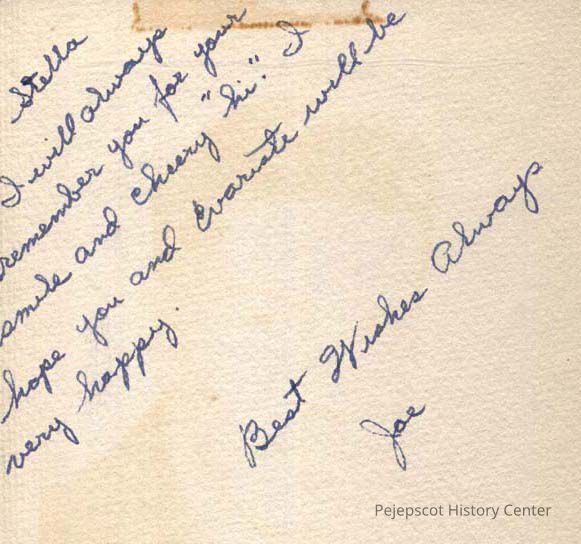 Stella
I will always
remember you for your
smile and cheery "hi". I
hope you and Evariste will be
very happy.
Best Wishes Always
Joe
Pejepscot History Center